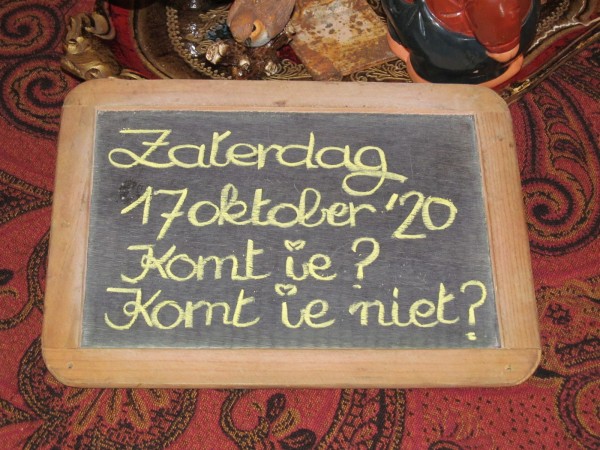 Zaterdag
17 oktober '20
Komt ie?
Komt ie niet?